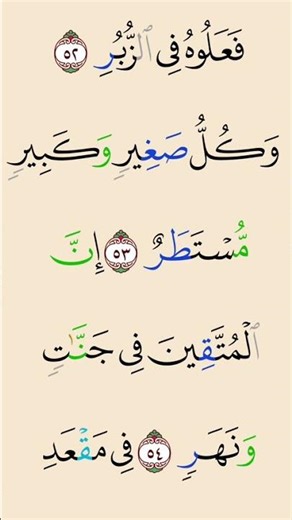 فَعَلُوهُ فِى ٱلزُّبُرِ ٥٢
وَكُلُّ صَغِيرٍ وَكَبِيرٍ
مُّسْتَطَرٌ ٥٣ إِنَّ
ٱلْمُتَّقِينَ فِى جَنَّٰتٍ
وَنَهَرٍ ٥٤ فِى مَقْعَدِ